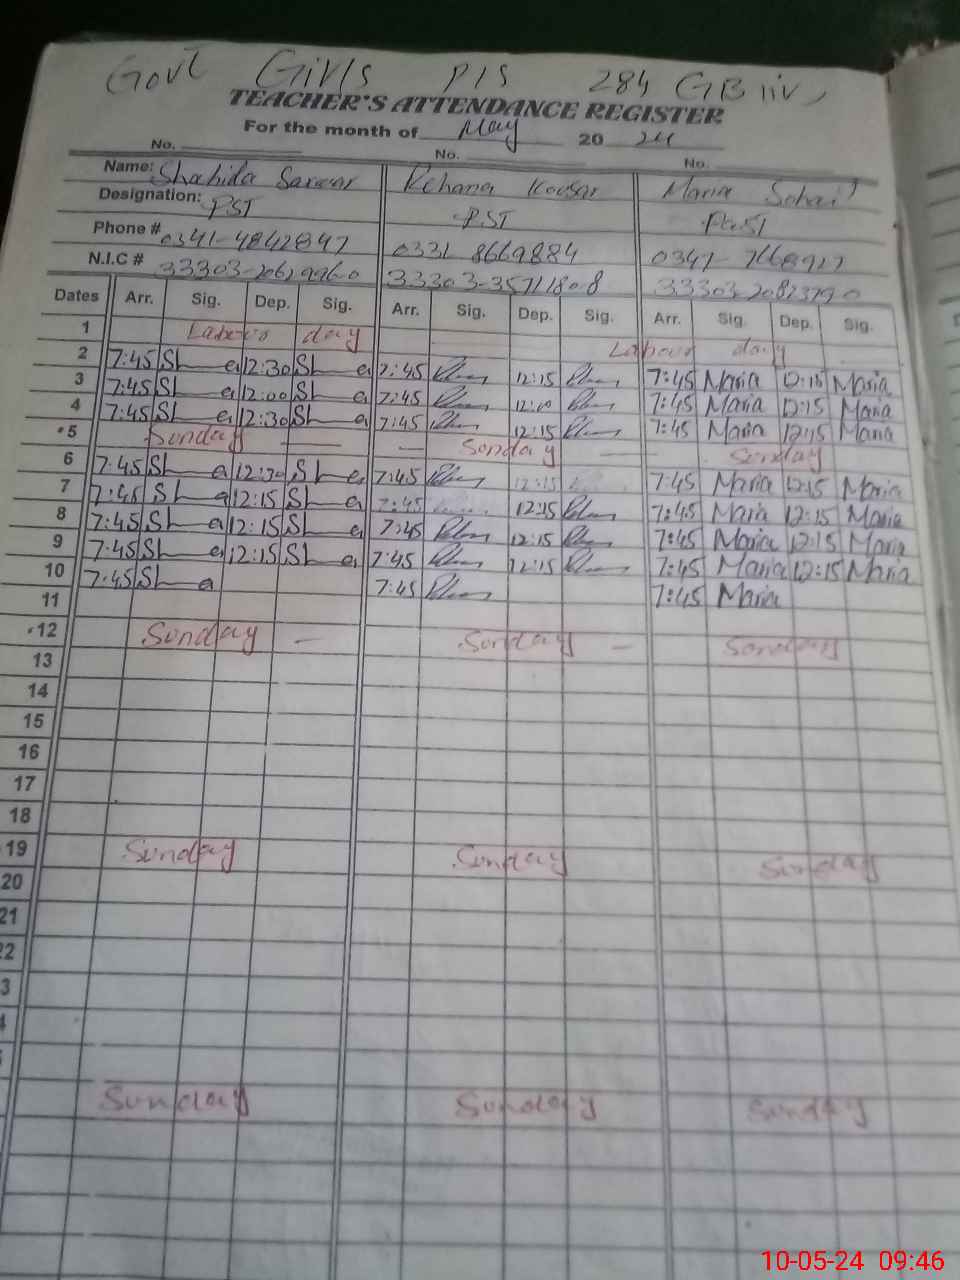 Govt Girls P/S 284 GB
TEACHER'S ATTENDANCE REGISTER
For the month of May 20 24
No. No. No.
Name: Shahida Sarwar Rehana Kousar Maria Sohail
Designation: PST PST PST
Phone # 0341-4842847 0331 8669884 0347-7668927
N.I.C # 33303-
Dates Arr. Sig. Dep. Sig. Arr. Sig. Dep. Sig. Arr. Sig. Dep. Sig.
1 Labour day Labour day
2 7:45 12:30 7:45 12:15 7:45 Maria 12:15 Maria
3 7:45 12:00 7:45 12:10 7:45 Maria 12:15 Maria
4 7:45 12:30 7:45 12:15 7:45 Maria 12:15 Maria
5 Sunday Sunday Sunday
6 7:45 12:30 7:45 12:15 7:45 Maria 12:15 Maria
7 7:45 12:15 7:45 12:15 7:45 Maria 12:15 Maria
8 7:45 12:15 7:45 12:15 7:45 Maria 12:15 Maria
9 7:45 12:15 7:45 12:15 7:45 Maria 12:15 Maria
10 7:45 7:45 7:45 Maria
11
12 Sunday Sunday Sunday
13
14
15
16
17
18
19 Sunday Sunday Sunday
20
21
Sunday Sunday Sunday
10-05-24 09:46